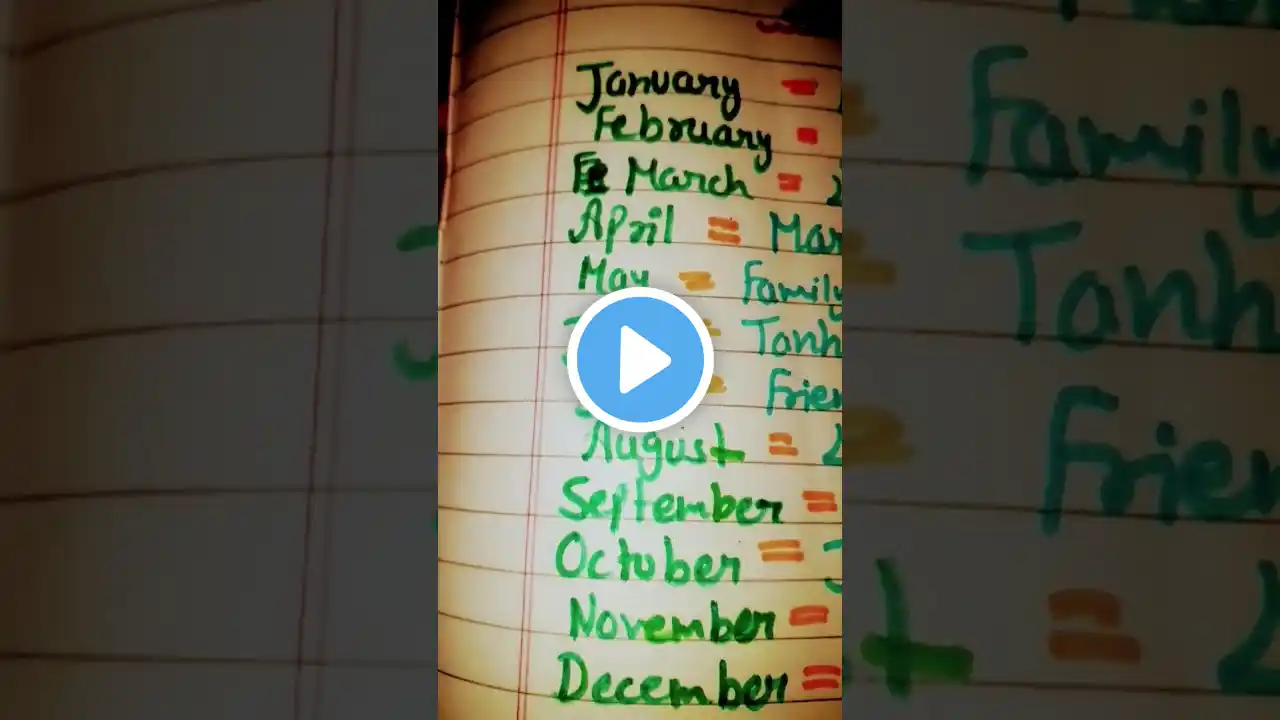 January =
February =
March =
April = Mar
May = Family
= Tanh
= Frien
August =
September =
October =
November =
December =